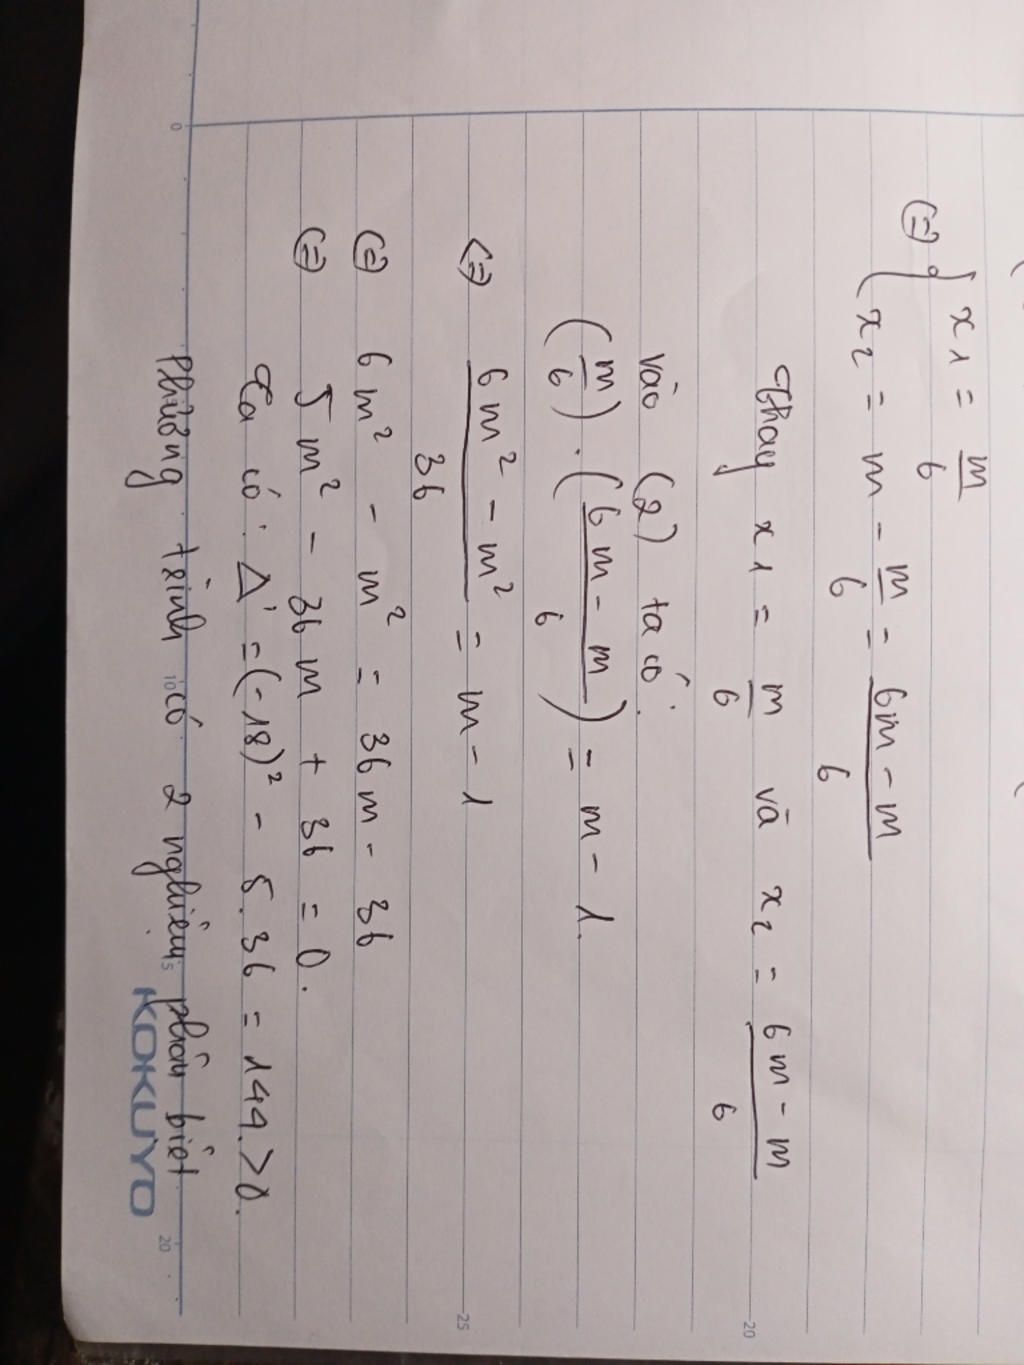 (=) { x1 = m/6
x2 = m - m/6 = (6m - m)/6
Thay x1 = m/6 và x2 = (6m - m)/6
vào (2) ta có:
(m/6) . ((6m - m)/6) = m - 1.
(=) (6m² - m²)/36 = m - 1
(=) 6m² - m² = 36m - 36
(=) 5m² - 36m + 36 = 0.
Ta có: Δ' = (-18)² - 5.36 = 144 > 0.
Phương trình có 2 nghiệm phân biệt
KOKUYO
0
10
15
20
20
25